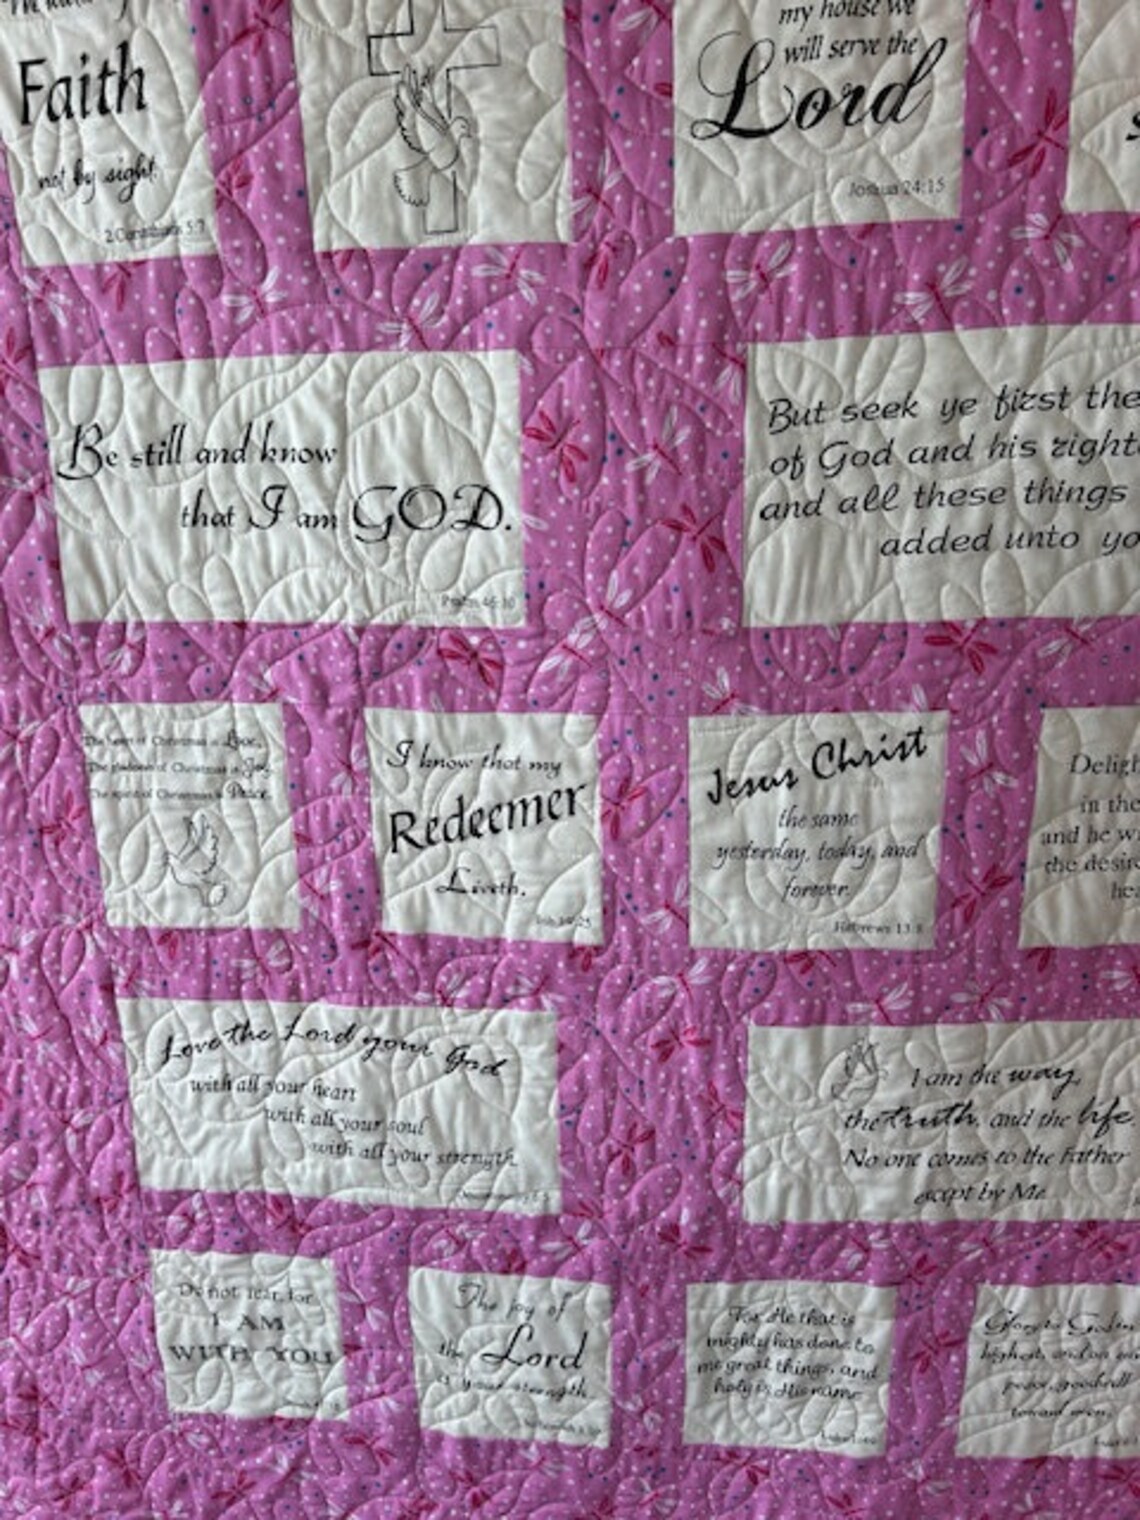 Faith
not by sight.
2 Corinthians 5:7
my house we
will serve the
Lord
Joshua 24:15
Be still and know
that I am GOD.
Psalm 46:10
But seek ye first the
of God and his right
and all these things
added unto yo
The heart of Christmas is Love.
The gladness of Christmas is Joy.
The spirit of Christmas is Peace.
I know that my
Redeemer
Liveth.
Job 19:25
Jesus Christ
the same
yesterday, today, and
forever.
Hebrews 13:8
Deligh
in the
and he wi
the desire
hea
Love the Lord your God
with all your heart
with all your soul
with all your strength
I am the way,
the truth, and the life.
No one comes to the Father
except by Me.
Do not fear, for
I AM
WITH YOU
The joy of
the Lord
is your strength.
For He that is
mighty has done to
me great things, and
holy is His name.
Glory to God in
highest, and on
peace, goodwill
toward men.